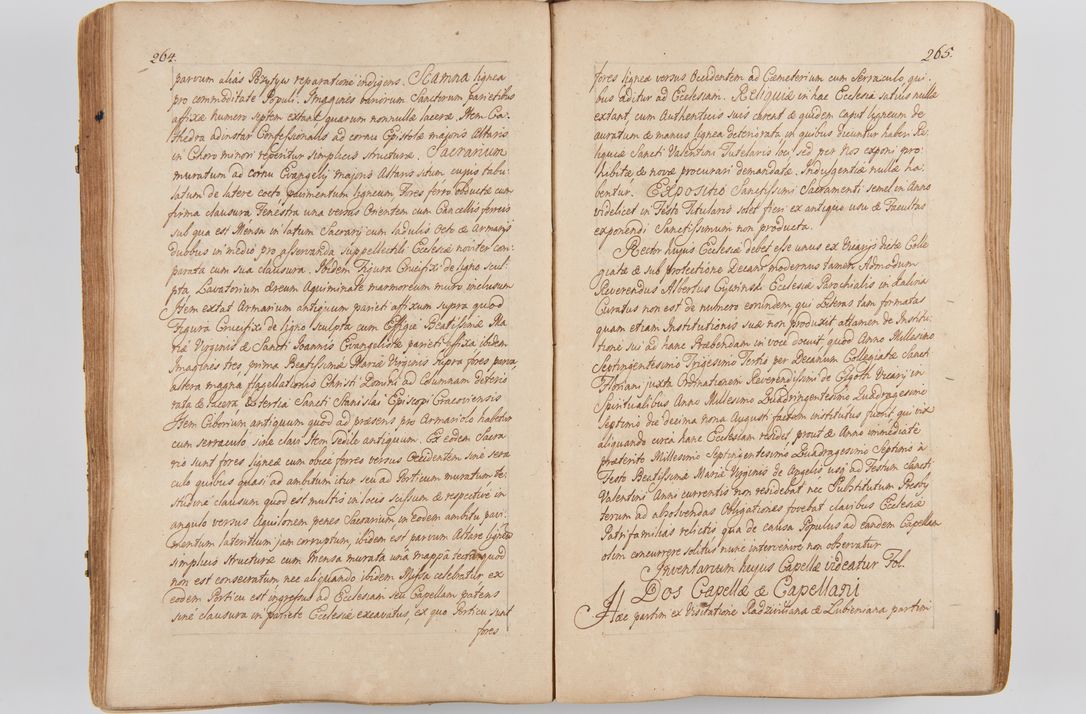 264.
parvum aliàs Pozytyw reparatione indigens. Scamna lignea
pro commoditate Populi. Imagines variorum Sanctorum parietibus
affixæ numero septem extant quarum nonnullæ laceræ. Item Ca=
thedra ad instar Confessionalis ad cornu Epistolæ majoris Altaris
in Choro minori reperitur simplicis structuræ. Sacrarium
muratum ad cornu Evangelij majoris Altaris situm cujus tabu=
latum de latere cocto, pavimentum ligneum Fores ferro obductæ cum
firma clausura Fenestra una versus Orientem cum Cancellis ferreis
sub qua est Mensa in latum Sacrarij cum ladulis Octo & Armarijs
duobus in medio pro asservanda suppellectili Ecclesiæ noviter com=
parata cum sua clausura. Ibidem Figura Crucifixi de ligno scul=
pta, Lavatorium æreum Aquiminale marmoreum muro inclusum
Item extat Armarium antiquum parieti affixum supra quod
Figura Crucifixi de ligno Sculpta cum Effigie Beatissimæ Ma
riæ Virginis & Sancti Joannis Evangelistæ parieti affixa ibidem
Imagines tres prima Beatissimæ Mariæ Virginis supra fores parva
altera magna flagellationis Christi Domini ad Columnam deterio
rata & lacera, & tertia Sancti Stanislai Episcopi Cracoviensis
Item Ciborium antiquum quod ad præsens pro Armariolo habetur
cum serraculo sine clavi Item sedile antiquum. Ex eodem Sacra
rio sunt fores ligneæ cum obice ferreo versus Occidentem sine sera
culo quibus quasi ad ambitum itur seu ad Porticum muratum te=
studine clausum quod est multis in locis scissum & respective in
angulo versus Aquilonem penes Sacrarium, in eodem ambitu pavi=
mentum lateritium jam corruptum, ibidem est parvum Altare ligneū
simplicis structuræ cum Mensa murata una mappa tectum quod
non est consecratum nec aliquando ibidem Missa celebratur, ex
eodem Porticu est ingressus ad Ecclesiam seu Capellam patens
sine clausura in pariete Ecclesiæ excavatus, ex quo Porticu sunt
fores
265.
fores ligneæ versus Occidentem ad Cæmeterium cum Serraculo, qui=
bus aditur ad Ecclesiam. Reliquiæ in hac Ecclesia satius nullæ
extant, cum Authenticis suis careat & quidem Caput ligneum de=
auratum & manus lignea deteriorata in quibus dicuntur haberi Re=
liquiæ Sancti Valentini Tutelaris loci, sed per Nos exponi pro=
hibitæ, & novæ procurari demandatæ. Indulgentiæ nullæ ha=
bentur. Expositio Sanctissimi Sacramenti semel in Anno
videlicet in Festo Titularis solet fieri ex antiquo usu & Facultas
exponendi Sanctissimum non producta.
Rector hujus Ecclesiæ debet esse unus ex Vicarijs dictæ Colle
giatæ & sub protectione Decani modernus tamen Admodum
Reverendus Albertus Cijwinski Ecclesiæ Parochialis in Kalina
Curatus non est de numero eorundem qui Literas tam formatas
quam etiam Institutionis suæ non produxit attamen de Institu=
tione sui ad hanc Præbendam in voce docuit quod Anno Millesimo
Septingentesimo Trigesimo Tertio per Decanum Collegiatæ Sancti
Floriani juxta Ordinationem Reverendissimi de Elgoth Vicarij in
Spiritualibus Anno Millesimo Quadringentesimo Quadragesimo
Septimo die decima nona Augusti factam institutus fuerit qui vix
aliquando circa hanc Ecclesiam residet, prout & Anno immediatè
præterito Millesimo Septingentesimo Quadragesimo Septimo à
Festo Beatissimæ Mariæ Virginis de Angelis usq; ad Festum Sancti
Valentini Anni currentis non residebat nec Substitutum Presby
terum ad absolvendas Obligationes fovebat clavibus Ecclesiæ
Patrifamilias relictis qua de causa Populus ad eandem Capellam
olim concurrere solitus nunc intervenire non observatur
Inventarium hujus Capellæ videatur Fol.
Dos Capellæ & Capellani
Hæc partim ex Visitatione Radziviliana & Lubieniana partim